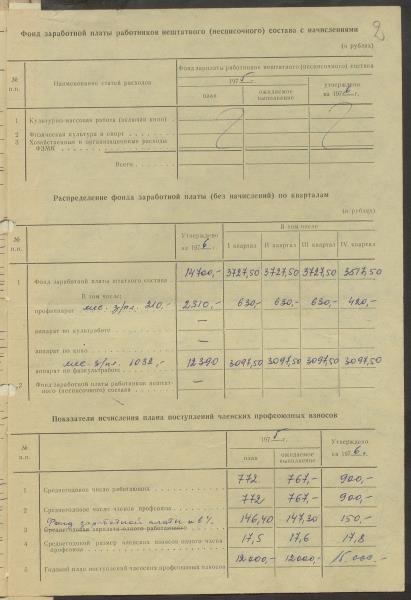 2
Фонд заработной платы работников нештатного (несписочного) состава с начислениями
(в рублях)
№ п.п.
Наименование статей расходов
Фонд зарплаты работников нештатного (несписочного) состава
1975 г.
план
ожидаемое выполнение
утверждено на 1976 г.
1 Культурно-массовая работа (включая кино)
2 Физическая культура и спорт
3 Хозяйственные и организационные расходы ФЗМК
Всего
Распределение фонда заработной платы (без начислений) по кварталам
(в рублях)
№ п.п.
Утверждено на 1976 г.
В том числе
I квартал II квартал III квартал IV квартал
1 Фонд заработной платы штатного состава 14700,- 3727,50 3727,50 3727,50 3517,50
В том числе:
профаппарат мес. з/пл. 210,- 2310,- 630,- 630,- 630,- 420,-
аппарат по культработе —
аппарат по кино —
мес. з/пл. 1032,- 12390 3097,50 3097,50 3097,50 3097,50
аппарат по физкультработе
2 Фонд заработной платы работников нештатного (несписочного) состава —
Показатели исчисления плана поступлений членских профсоюзных взносов
№ п.п.
1975 г.
план
ожидаемое выполнение
Утверждено на 1976 г.
1 Среднегодовое число работающих 772 767,- 900,-
2 Среднегодовое число членов профсоюза 772 767,- 900,-
Фонд заработной платы
3 Среднегодовая зарплата одного работающего 146,40 147,20 150,-
4 Среднегодовой размер членских взносов одного члена профсоюза 17,5 17,6 17,8
5 Годовой план поступлений членских профсоюзных взносов 12000,- 12000,- 15000,-